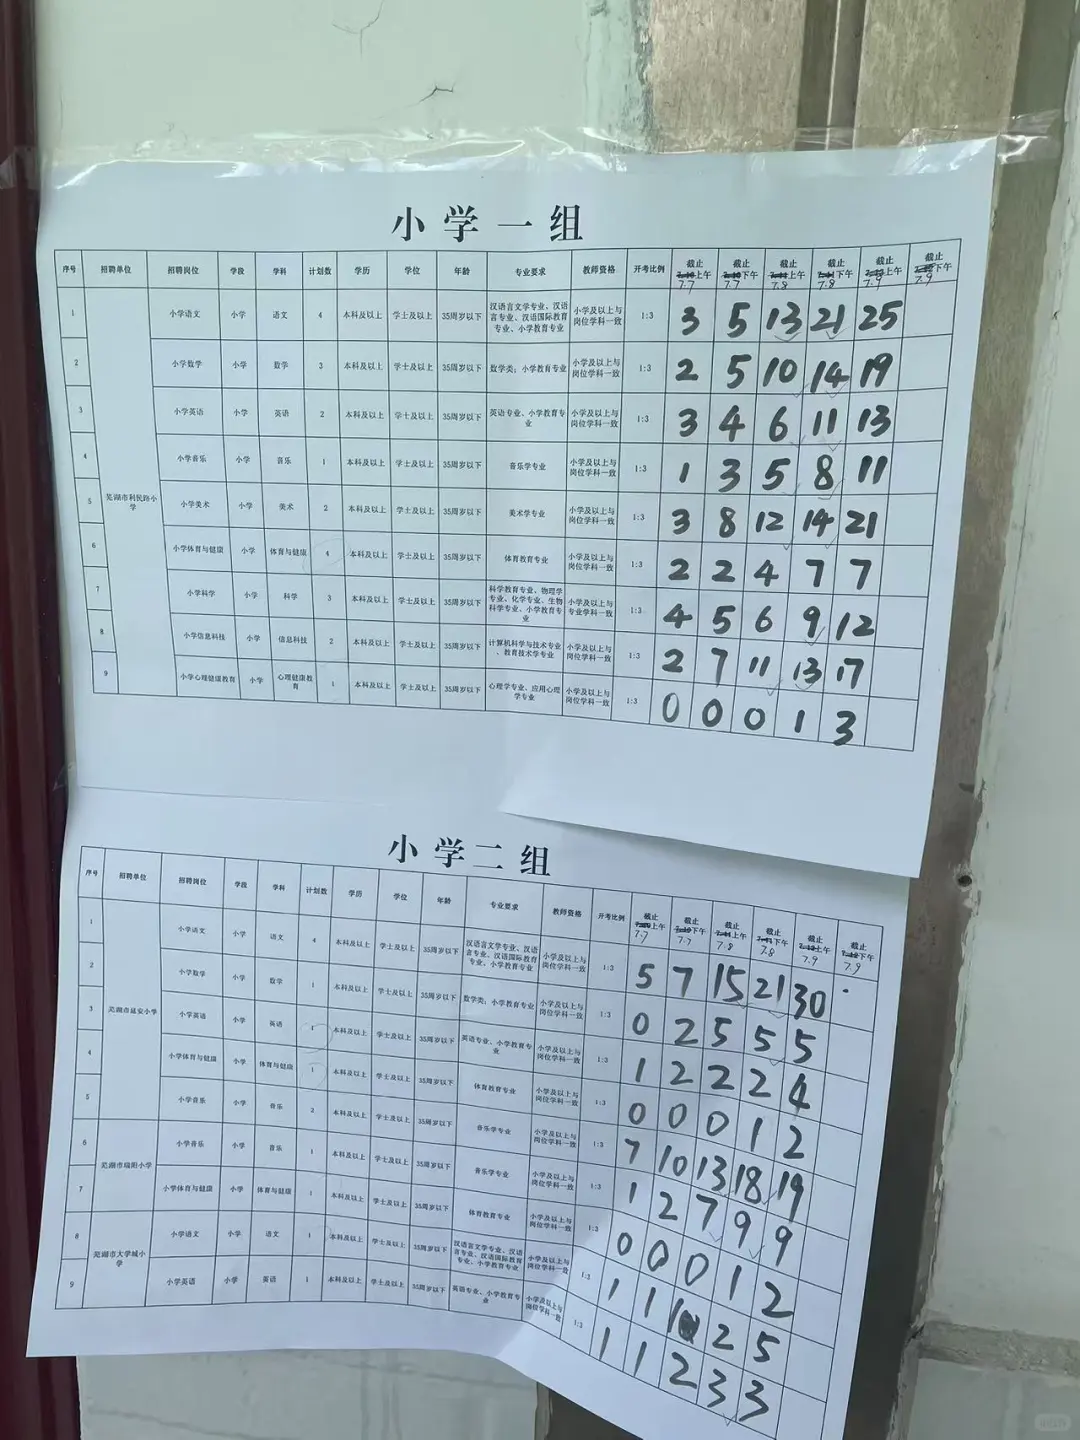 小学一组
序号 招聘单位 招聘岗位 学段 学科 计划数 学历 学位 年龄 专业要求 教师资格 开考比例 截止 上午 7.7 截止 下午 7.7 截止 上午 7.8 截止 下午 7.8 截止 上午 7.9 截止 下午 7.9
芜湖市利民路小学
1 小学语文 小学 语文 4 本科及以上 学士及以上 35周岁以下 汉语言文学专业、汉语言专业、汉语国际教育专业、小学教育专业 小学及以上与岗位学科一致 1:3 3 5 13 21 25
2 小学数学 小学 数学 3 本科及以上 学士及以上 35周岁以下 数学类；小学教育专业 小学及以上与岗位学科一致 1:3 2 5 10 14 19
3 小学英语 小学 英语 2 本科及以上 学士及以上 35周岁以下 英语专业、小学教育专业 小学及以上与岗位学科一致 1:3 3 4 6 11 13
4 小学音乐 小学 音乐 1 本科及以上 学士及以上 35周岁以下 音乐学专业 小学及以上与岗位学科一致 1:3 1 3 5 8 11
5 小学美术 小学 美术 2 本科及以上 学士及以上 35周岁以下 美术学专业 小学及以上与岗位学科一致 1:3 3 8 12 14 21
6 小学体育与健康 小学 体育与健康 4 本科及以上 学士及以上 35周岁以下 体育教育专业 小学及以上与岗位学科一致 1:3 2 2 4 7 7
7 小学科学 小学 科学 3 本科及以上 学士及以上 35周岁以下 科学教育专业、物理学专业、化学专业、生物科学专业、小学教育专业 小学及以上与专业学科一致 1:3 4 5 6 9 12
8 小学信息科技 小学 信息科技 2 本科及以上 学士及以上 35周岁以下 计算机科学与技术专业、教育技术学专业 小学及以上与岗位学科一致 1:3 2 7 11 13 17
9 小学心理健康教育 小学 心理健康教育 1 本科及以上 学士及以上 35周岁以下 心理学专业、应用心理学专业 小学及以上与岗位学科一致 1:3 0 0 0 1 3
小学二组
序号 招聘单位 招聘岗位 学段 学科 计划数 学历 学位 年龄 专业要求 教师资格 开考比例 截止 上午 7.7 截止 下午 7.7 截止 上午 7.8 截止 下午 7.8 截止 上午 7.9 截止 下午 7.9
芜湖市延安小学
1 小学语文 小学 语文 4 本科及以上 学士及以上 35周岁以下 汉语言文学专业、汉语言专业、汉语国际教育专业、小学教育专业 小学及以上与岗位学科一致 1:3 5 7 15 21 30
2 小学数学 小学 数学 1 本科及以上 学士及以上 35周岁以下 数学类；小学教育专业 小学及以上与岗位学科一致 1:3 0 2 5 5 5
3 小学英语 小学 英语 1 本科及以上 学士及以上 35周岁以下 英语专业、小学教育专业 小学及以上与岗位学科一致 1:3 1 2 2 2 4
4 小学体育与健康 小学 体育与健康 1 本科及以上 学士及以上 35周岁以下 体育教育专业 小学及以上与岗位学科一致 1:3 0 0 0 1 2
5 小学音乐 小学 音乐 2 本科及以上 学士及以上 35周岁以下 音乐学专业 小学及以上与岗位学科一致 1:3 7 10 13 18 19
芜湖市瑞阳小学
6 小学音乐 小学 音乐 1 本科及以上 学士及以上 35周岁以下 音乐学专业 小学及以上与岗位学科一致 1:3 1 2 7 9 9
7 小学体育与健康 小学 体育与健康 1 本科及以上 学士及以上 35周岁以下 体育教育专业 小学及以上与岗位学科一致 0 0 0 1 2
芜湖市大学城小学
8 小学语文 小学 语文 1 本科及以上 学士及以上 35周岁以下 汉语言文学专业、汉语言专业、汉语国际教育专业、小学教育专业 小学及以上与岗位学科一致 1:3 1 1 1 2 5
9 小学英语 小学 英语 1 本科及以上 学士及以上 35周岁以下 英语专业、小学教育专业 小学及以上与岗位学科一致 1:3 1 1 2 3 3